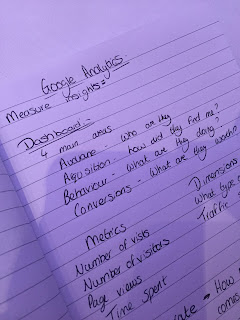 Google Analytics:
Measure insights:
Dashboard:-
4 main areas
Audience - who are they
Aquisition - how did they find me?
Behaviour - what are they doing?
Conversions - what are they worth?
Metrics
Dimensions
Number of visits
what type of
Number of visitors
Traffic
Page views
Time spent
How